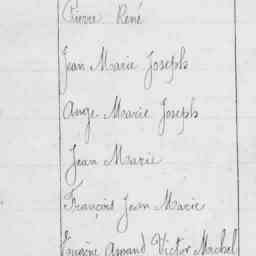 Pierre René
Jean Marie Joseph
Ange Marie Joseph
Jean Marie
François Jean Marie
Eugène Armand Victor Michel